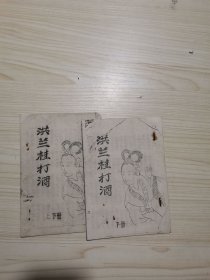 洪兰桂打酒
上下册
洪兰桂打酒
下册